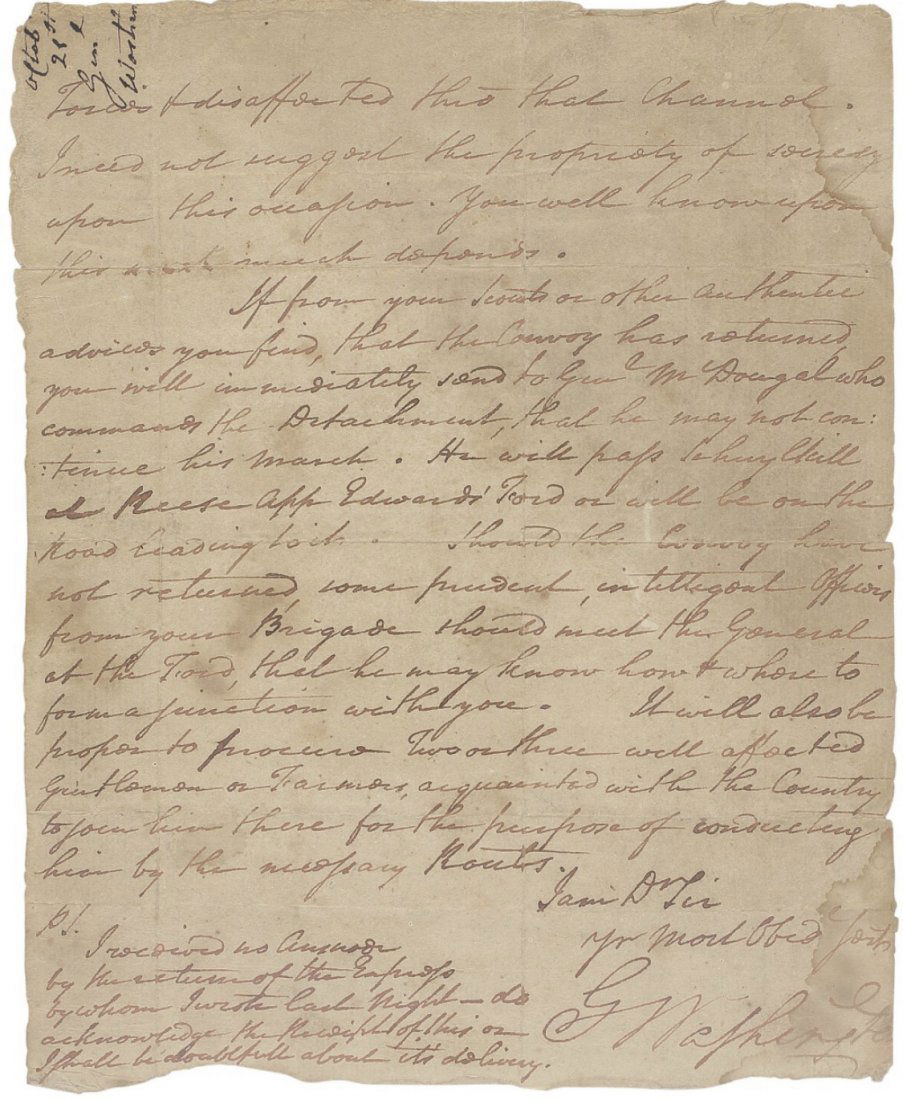 Octob
25th
Genl
Washin
Tories & disaffected thro that Channel.
I need not suggest the propriety of secrecy
upon this occasion. You well know upon
this much depends.
If from your Scouts or other authentic
advices you find, that the Convoy has returned,
you will immediately send to Genl McDougal who
commands the Detachment, that he may not con:
:tinue his march. He will pass Schuylkill
at Reese App Edwards' Ford or will be on the
Road leading to it. Should the Convoy have
not returned, some prudent, intelligent Officers
from your Brigade should meet the General
at the Ford, that he may know how & where to
form a junction with you. It will also be
proper to procure Two or three well affected
Gentlemen or Farmers, acquainted with the Country
to join him there for the purpose of conducting
him by the necessary Routes.
I am Dr Sir
Yr Most Obed Servt
G Washington
P.S.
I received no Answer
by the return of the Express
by whom I wrote last Night – do
acknowledge the Receipt of this or
I shall be doubtfull about it's delivery.